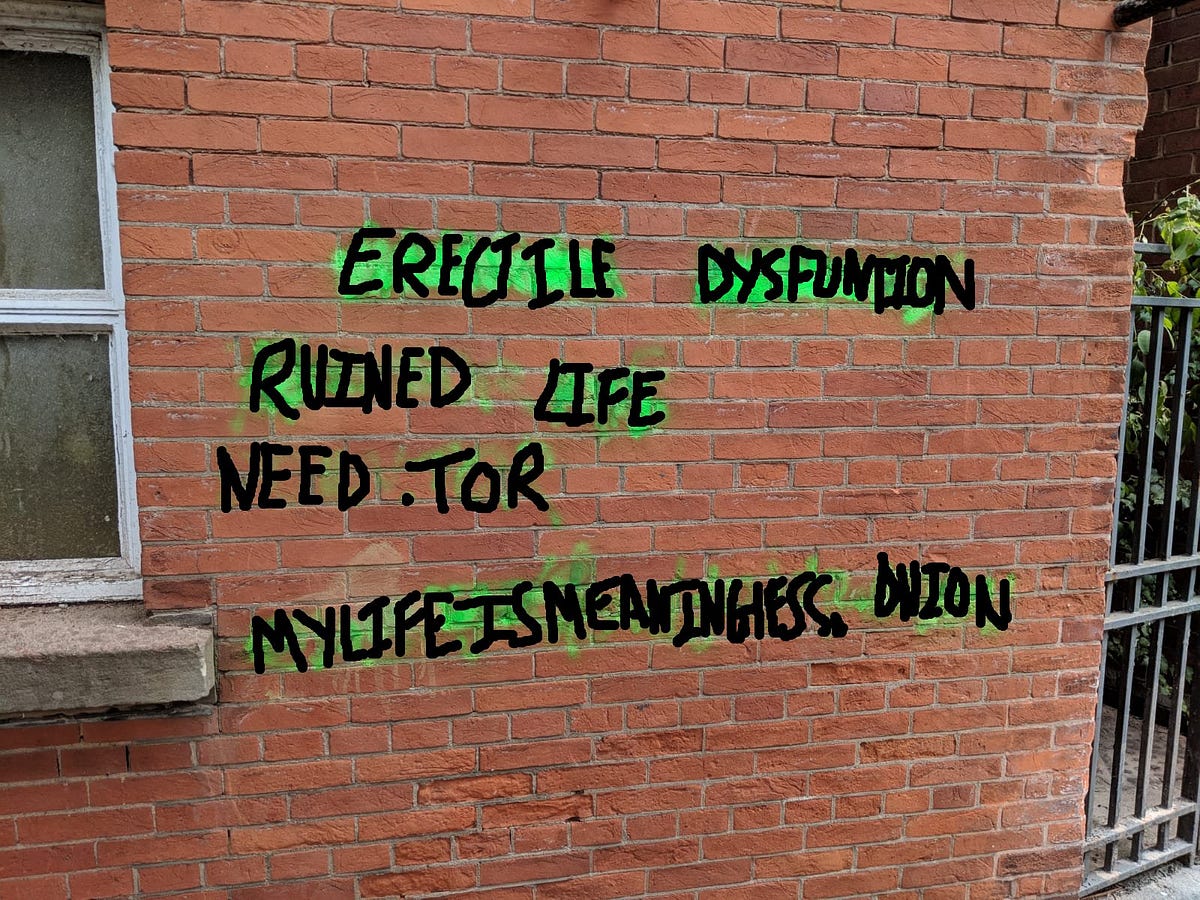 ERECTILE DYSFUNTION
RUINED LIFE
NEED .TOR
MYLIFEISMEANINGLESS. ONION